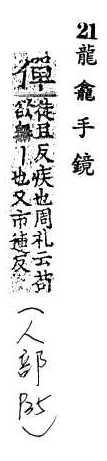 21 龍龕手鏡
僤 徒且反疾也周礼云苟
欲無丨也又市連反
(人部 )